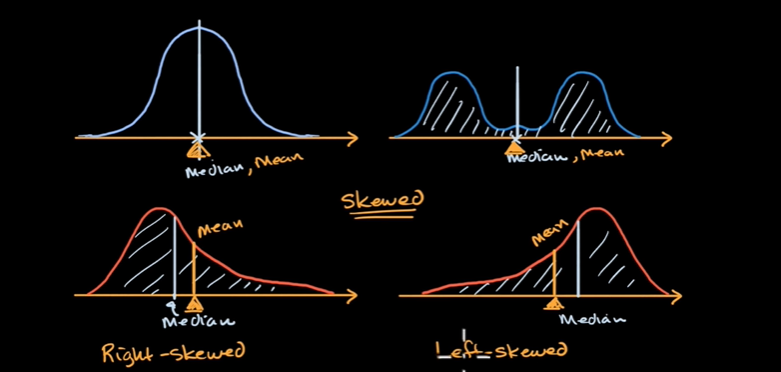 Median, Mean
Median, Mean
Skewed
Mean
Median
Right-skewed
Mean
Median
Left-skewed